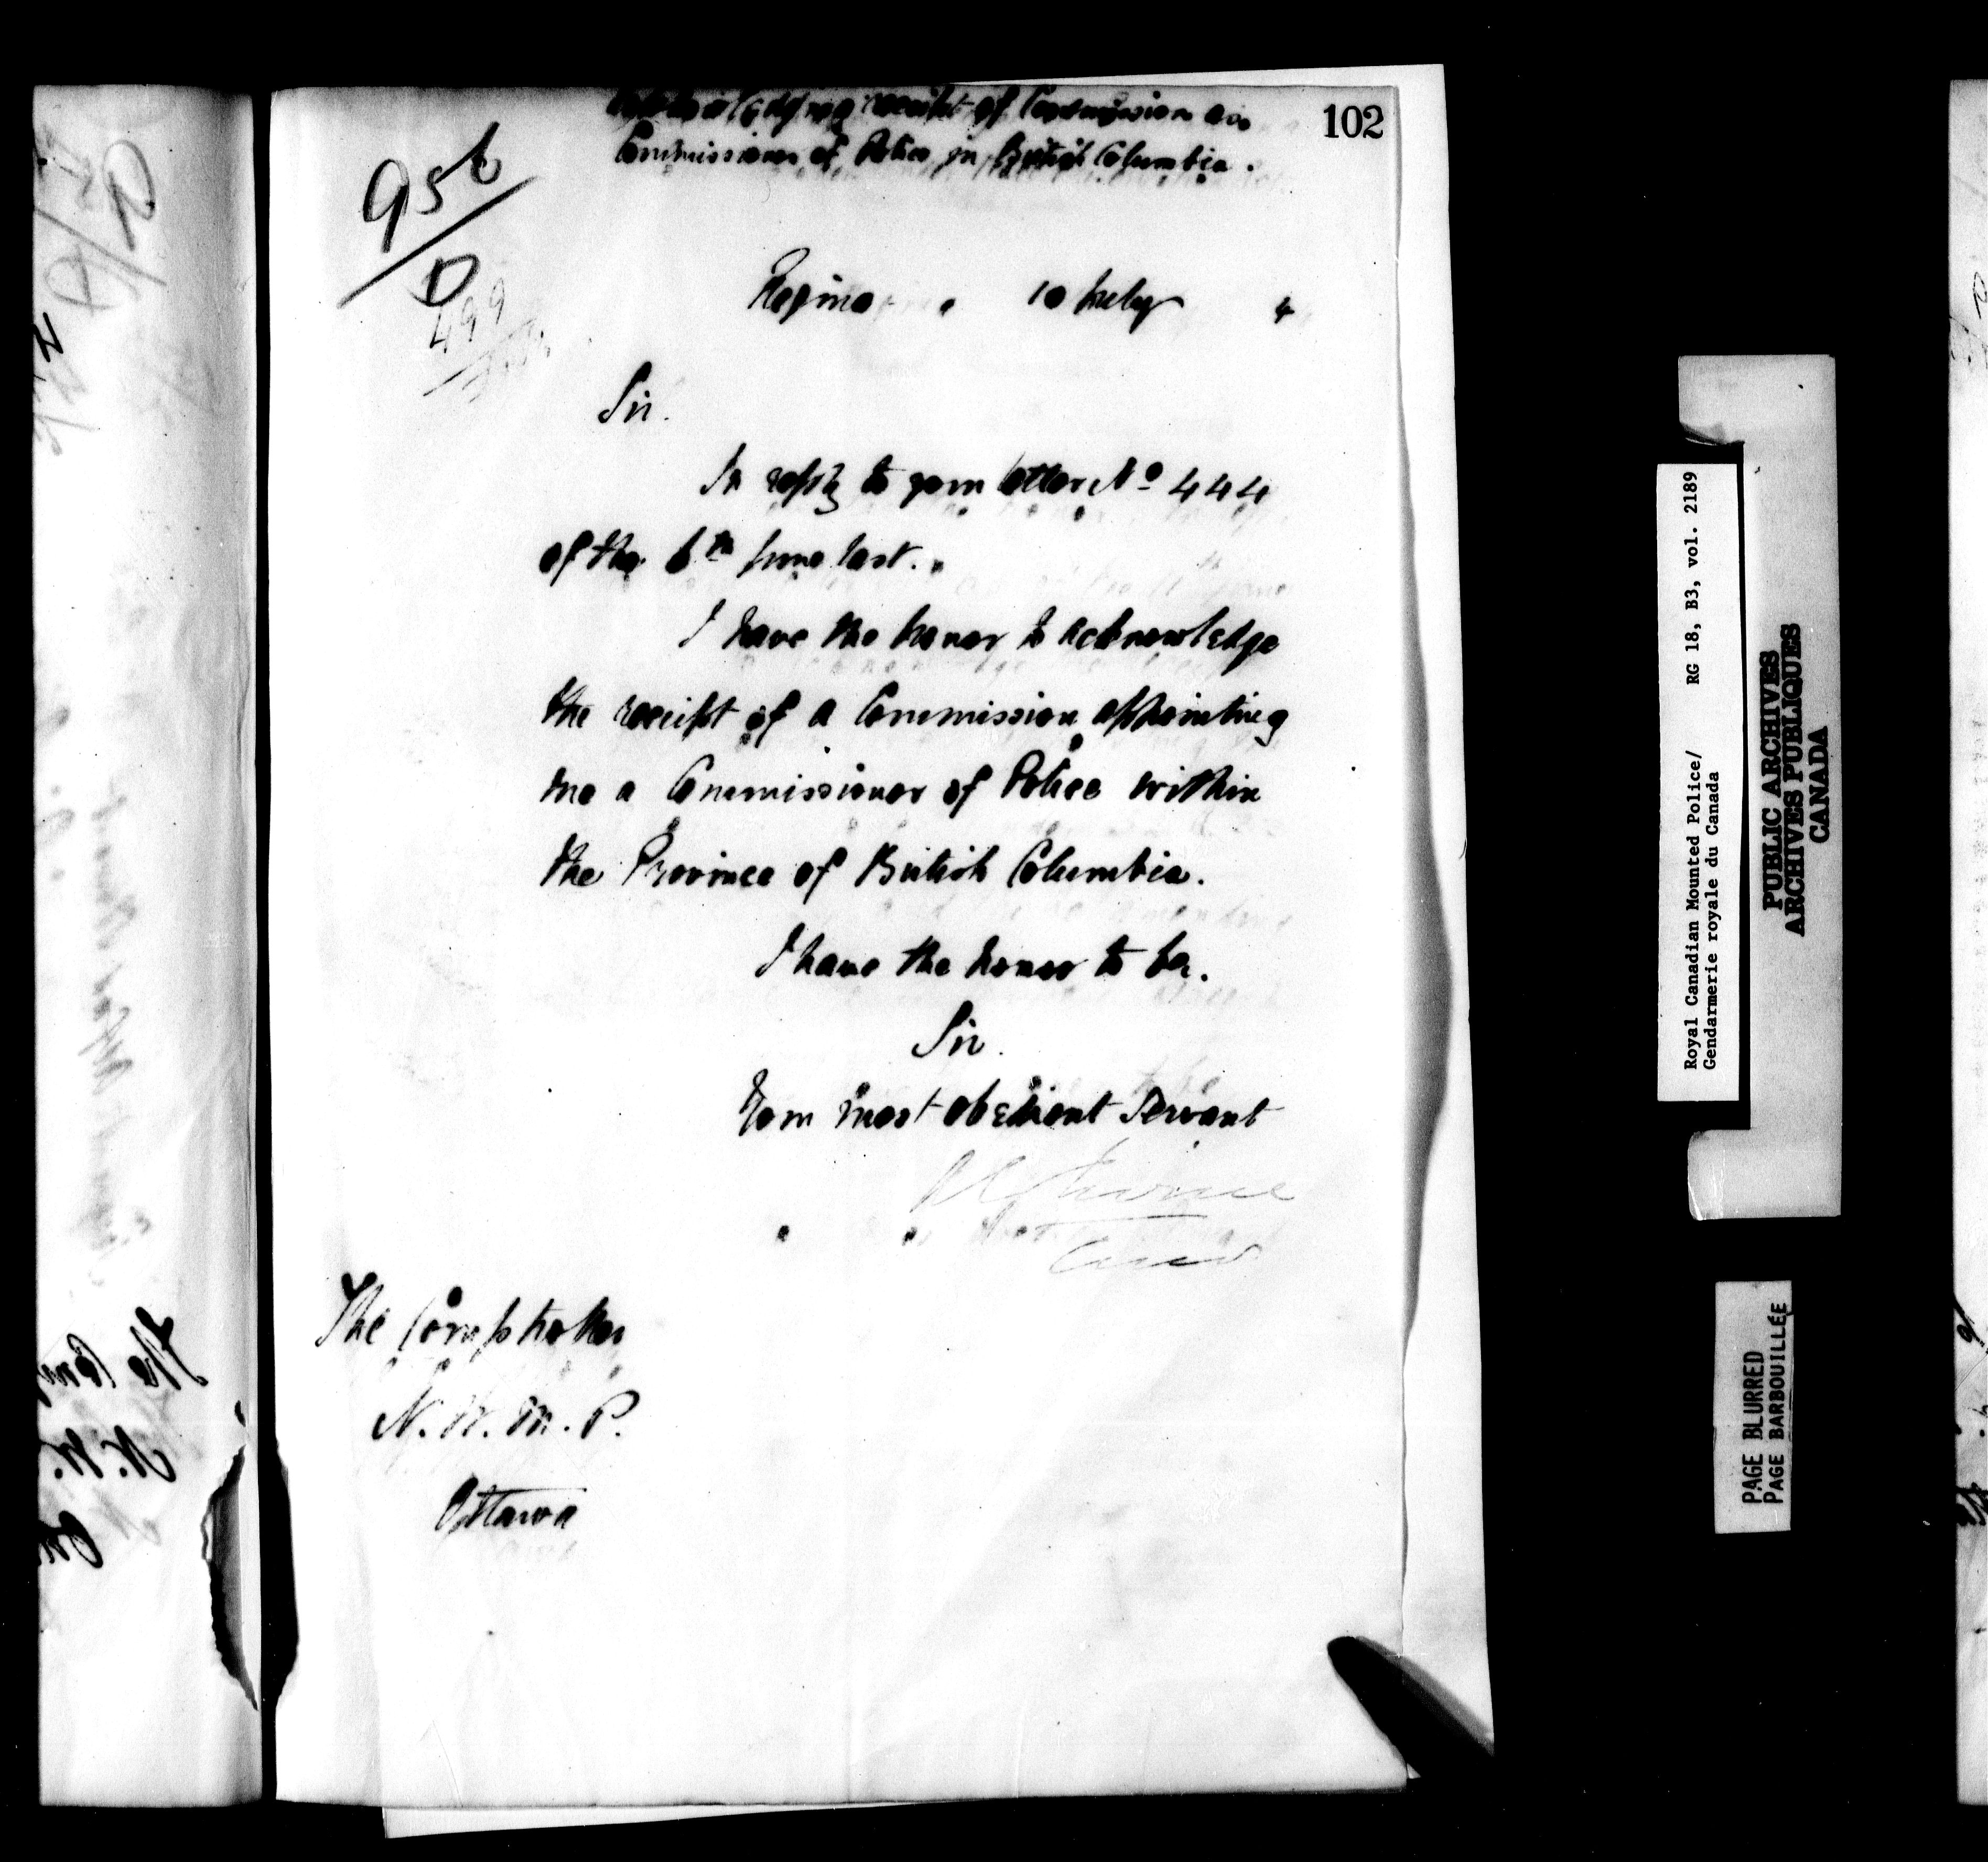 102
Acknowledging receipt of Commission as
Commissioner of Police in British Columbia.
956
D
499
Regina 10 July 4
Sir.
In reply to your letter No 444
of the 6th June last.
I have the honor to acknowledge
the receipt of a Commission appointing
me a Commissioner of Police within
the Province of British Columbia.
I have the honor to be.
Sir.
Your most obedient Servant
The Comptroller
N.W.M.P.
Ottawa
Royal Canadian Mounted Police/ RG 18, B3, vol. 2189
Gendarmerie royale du Canada
PUBLIC ARCHIVES
ARCHIVES PUBLIQUES
CANADA
PAGE BLURRED
PAGE BARBOUILLÉE